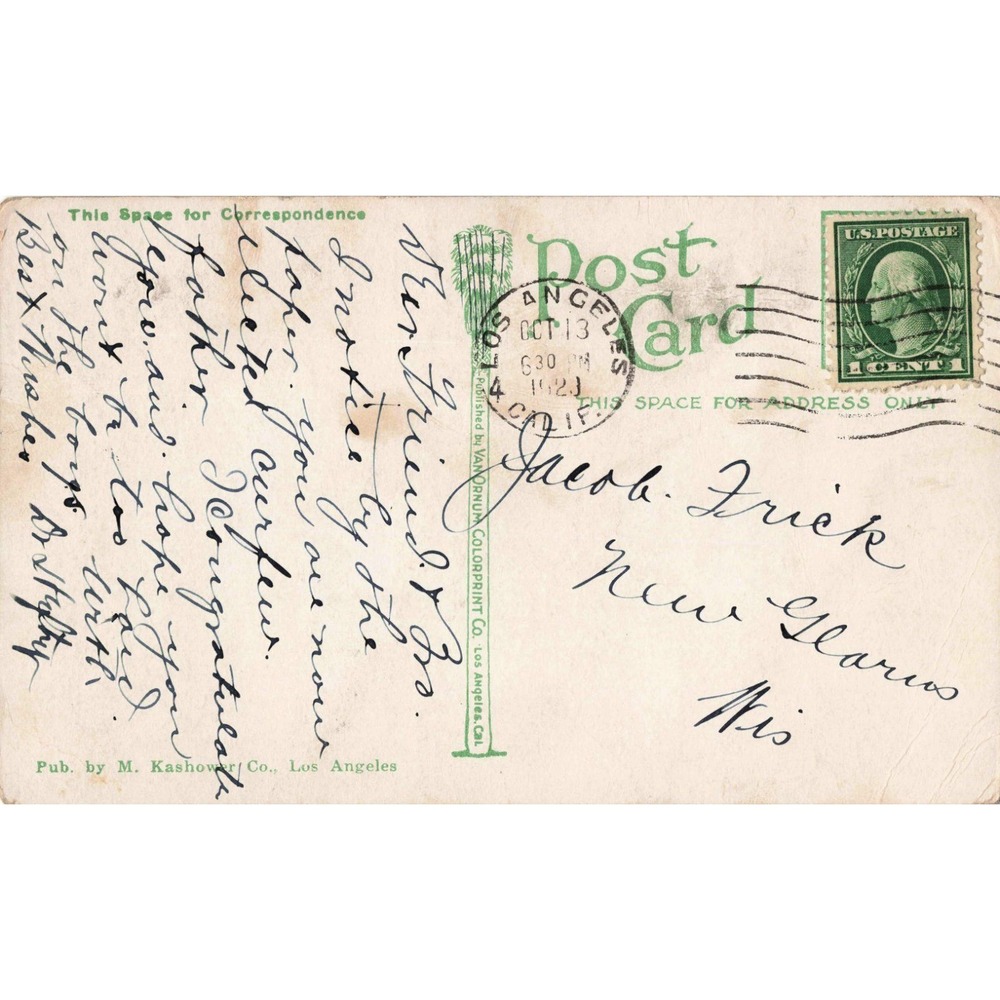 This Space for Correspondence
Mr Friend & Bro.
I notice by the
paper you are now
elected curfew.
father I Congratulate
you, and hope your
work to be too hard
on the boys. With
Best Wishes
Pub. by M. Kashower Co., Los Angeles
Published by VAN ORNUM COLORPRINT CO. LOS ANGELES, CAL.
Post Card
THIS SPACE FOR ADDRESS ONLY
LOS ANGELES
OCT 13
630 PM
CALIF.
4
U.S. POSTAGE
1 CENT 1
Jacob. Frick
New Glarus
Wis